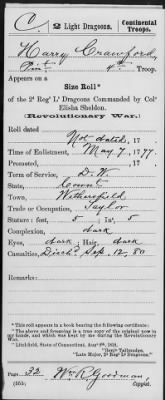 C. 2 Light Dragoons. Continental Troops.
Harry Crawford,
Priv., 4th Troop.
Appears on a
Size Roll*
of the 2d Reg't L't Dragoons Commanded by Col'
Elisha Sheldon.
(Revolutionary War.)
Roll dated
Not dated, 17
Time of Enlistment, May 7, 1777.
Promoted, , 17
Term of Service, D. W.
State, Connt
Town, Withersfield
Trade or Occupation, Taylor
Stature: feet, 5 ; In's, 5
Complexion, dark
Eyes, dark ; Hair, dark
Casualties, Disch'd Sep. 12, 80
Remarks:
*This roll appears in a book bearing the following certificate:
"The above and foregoing is a true copy of the original now in my hands, and which was by me received at the close of the war.
"Litchfield, State of Connecticut, Augt 9th, 1828.
"Benjn Tallmadge,
"Late Major, 2d Regt Lt Dragoons."
Page 32. Wm R. Goodman,
(555) Copyist.